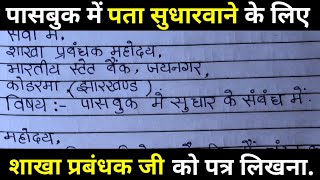 पासबुक में पता सुधारवाने के लिए
सेवा में,
शाखा प्रबंधक महोदय,
भारतीय स्टेट बैंक, जयनगर,
कोडरमा (झारखण्ड)
विषय :- पासबुक में सुधार के संबंध में.
महोदय,
शाखा प्रबंधक जी को पत्र लिखना.